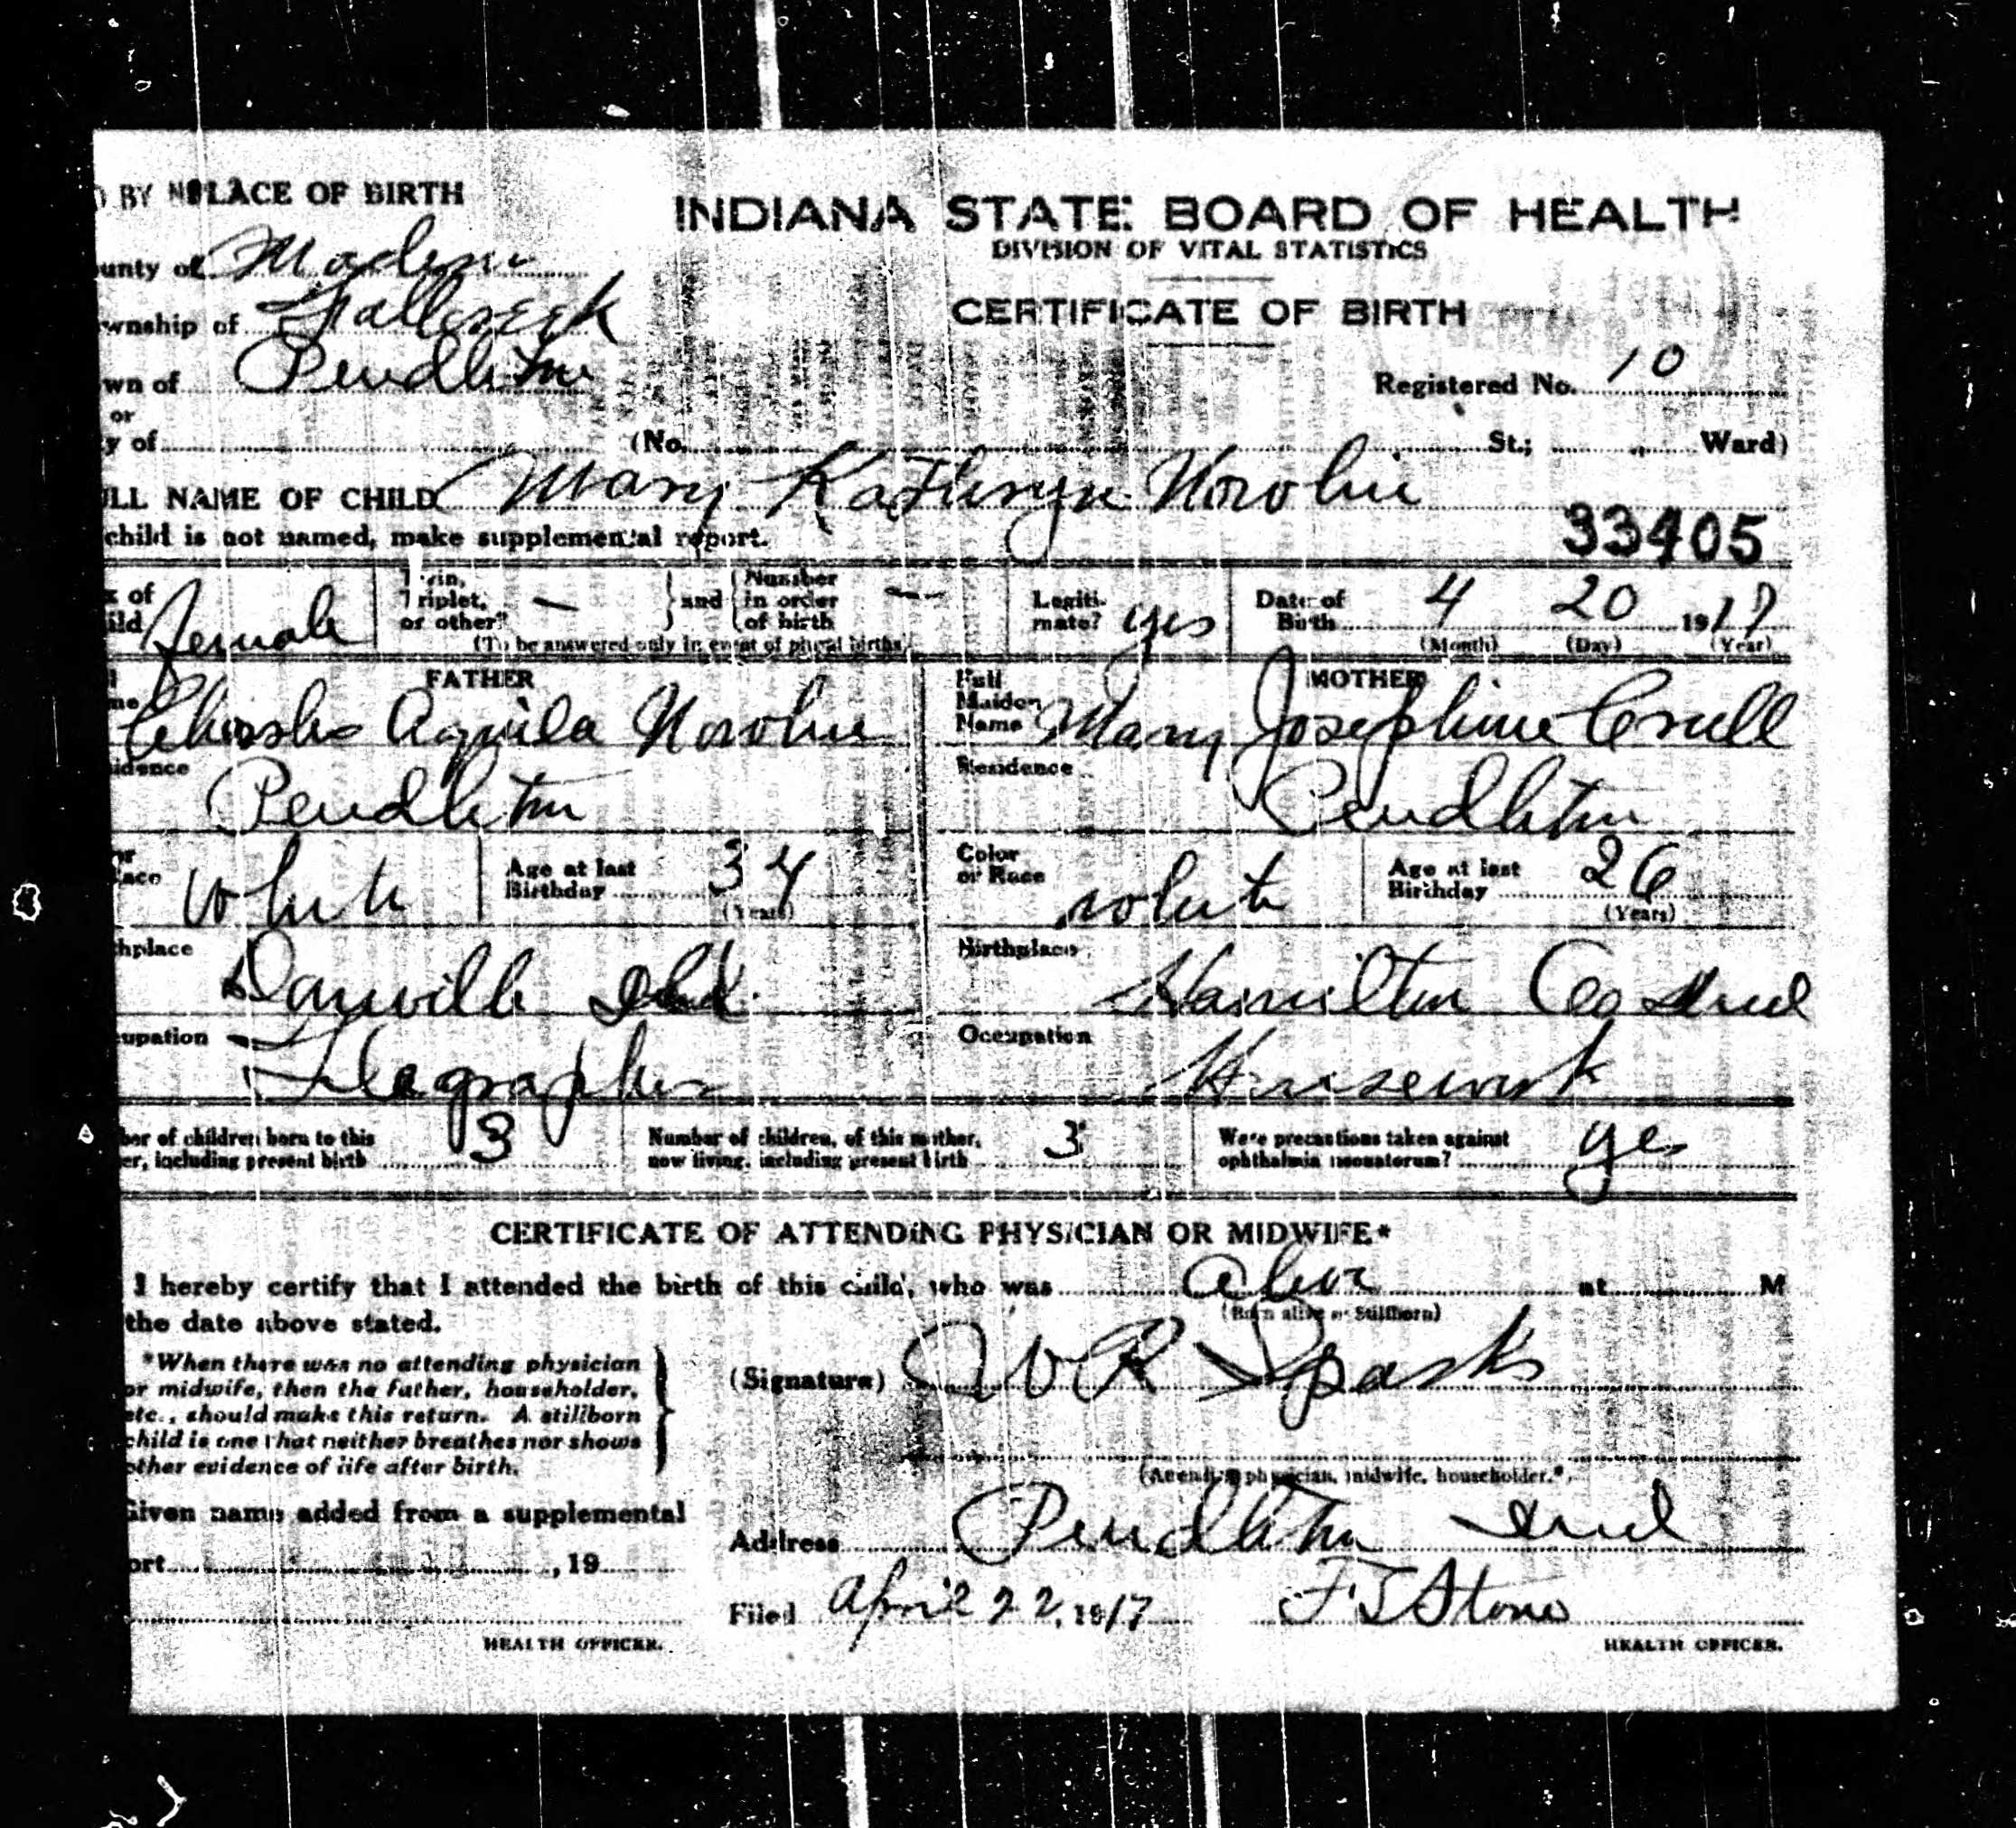 BY N PLACE OF BIRTH
INDIANA STATE BOARD OF HEALTH
DIVISION OF VITAL STATISTICS
unty of Madison
CERTIFICATE OF BIRTH
wnship of Fallcreek
wn of Pendleton
Registered No. 10
or
y of (No. St.; Ward)
ULL NAME OF CHILD Mary Kathryn
33405
child is not named, make supplemental report.
x of ild female
Twin, Triplet, or other? —
and
Number in order of birth —
(To be answered only in event of plural births)
Legiti-mate? yes
Date of Birth 4 20 1917
(Month) (Day) (Year)
FATHER
me Charles Aquila
idence
Pendleton
or ace White
Age at last Birthday 34
(Years)
hplace
Danville Ind
upation
Telegrapher
MOTHER
Full Maiden Name Mary Josephine
Residence
Pendleton
Color or Race white
Age at last Birthday 26
(Years)
Birthplace
Hamilton Co Ind
Occupation
Housework
ber of children born to this er, including present birth 3
Number of children, of this mother, now living, including present birth 3
Were precautions taken against ophthalmia neonatorum? yes
CERTIFICATE OF ATTENDING PHYSICIAN OR MIDWIFE*
I hereby certify that I attended the birth of this child, who was alive at M
(Born alive or Stillborn)
the date above stated.
*When there was no attending physician
or midwife, then the father, householder,
etc., should make this return. A stillborn
child is one that neither breathes nor shows
other evidence of life after birth.
(Signature) W R Sparks
(Attending physician, midwife, householder.*)
Given name added from a supplemental
ort , 19
HEALTH OFFICER.
Address Pendleton Ind
Filed April 22, 1917 F S Stone
HEALTH OFFICER.